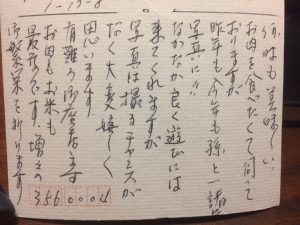 何時も美味しい
お肉を食べたくて伺って
おりますが
昨年も今年も孫と一諸
写真に!!
なかなか良く遊びには
来てくれますが
写真は撮るチャンスが
なく大変嬉しく
思います
有難う御座居ます
お肉もお米も
最高です。増々の
御繁栄を祈ります
3560004